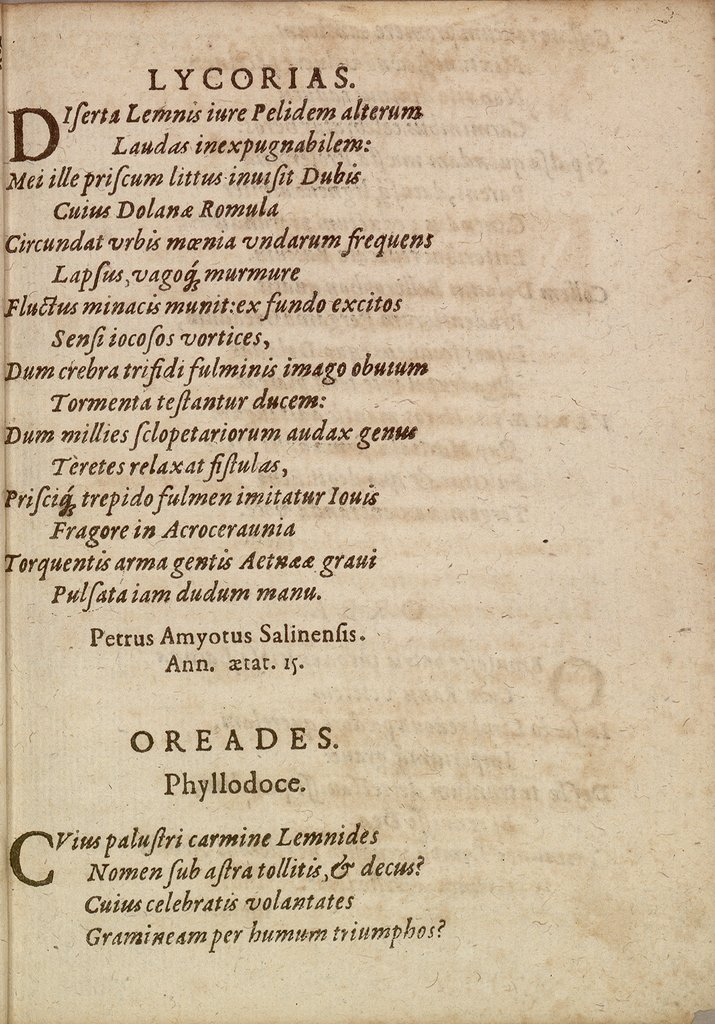 LYCORIAS.
DIſerta Lemnis iure Pelidem alterum
Laudas inexpugnabilem:
Mei ille priſcum littus inuiſit Dubis
Cuius Dolanæ Romula
Circundat vrbis mœnia vndarum frequens
Lapſus, vagoq́; murmure
Fluctus minacis munit: ex fundo excitos
Senſi iocoſos vortices,
Dum crebra trifidi fulminis imago obuium
Tormenta teſtantur ducem:
Dum millies ſclopetariorum audax genus
Teretes relaxat fiſtulas,
Priſciq́; trepido fulmen imitatur Iouis
Fragore in Acroceraunia
Torquentis arma gentis Aetnææ graui
Pulſata iam dudum manu.
Petrus Amyotus Salinenſis.
Ann. ætat. 15.
OREADES.
Phyllodoce.
CVius paluſtri carmine Lemnides
Nomen ſub aſtra tollitis, & decus?
Cuius celebratis volantates
Gramineam per humum triumphos?